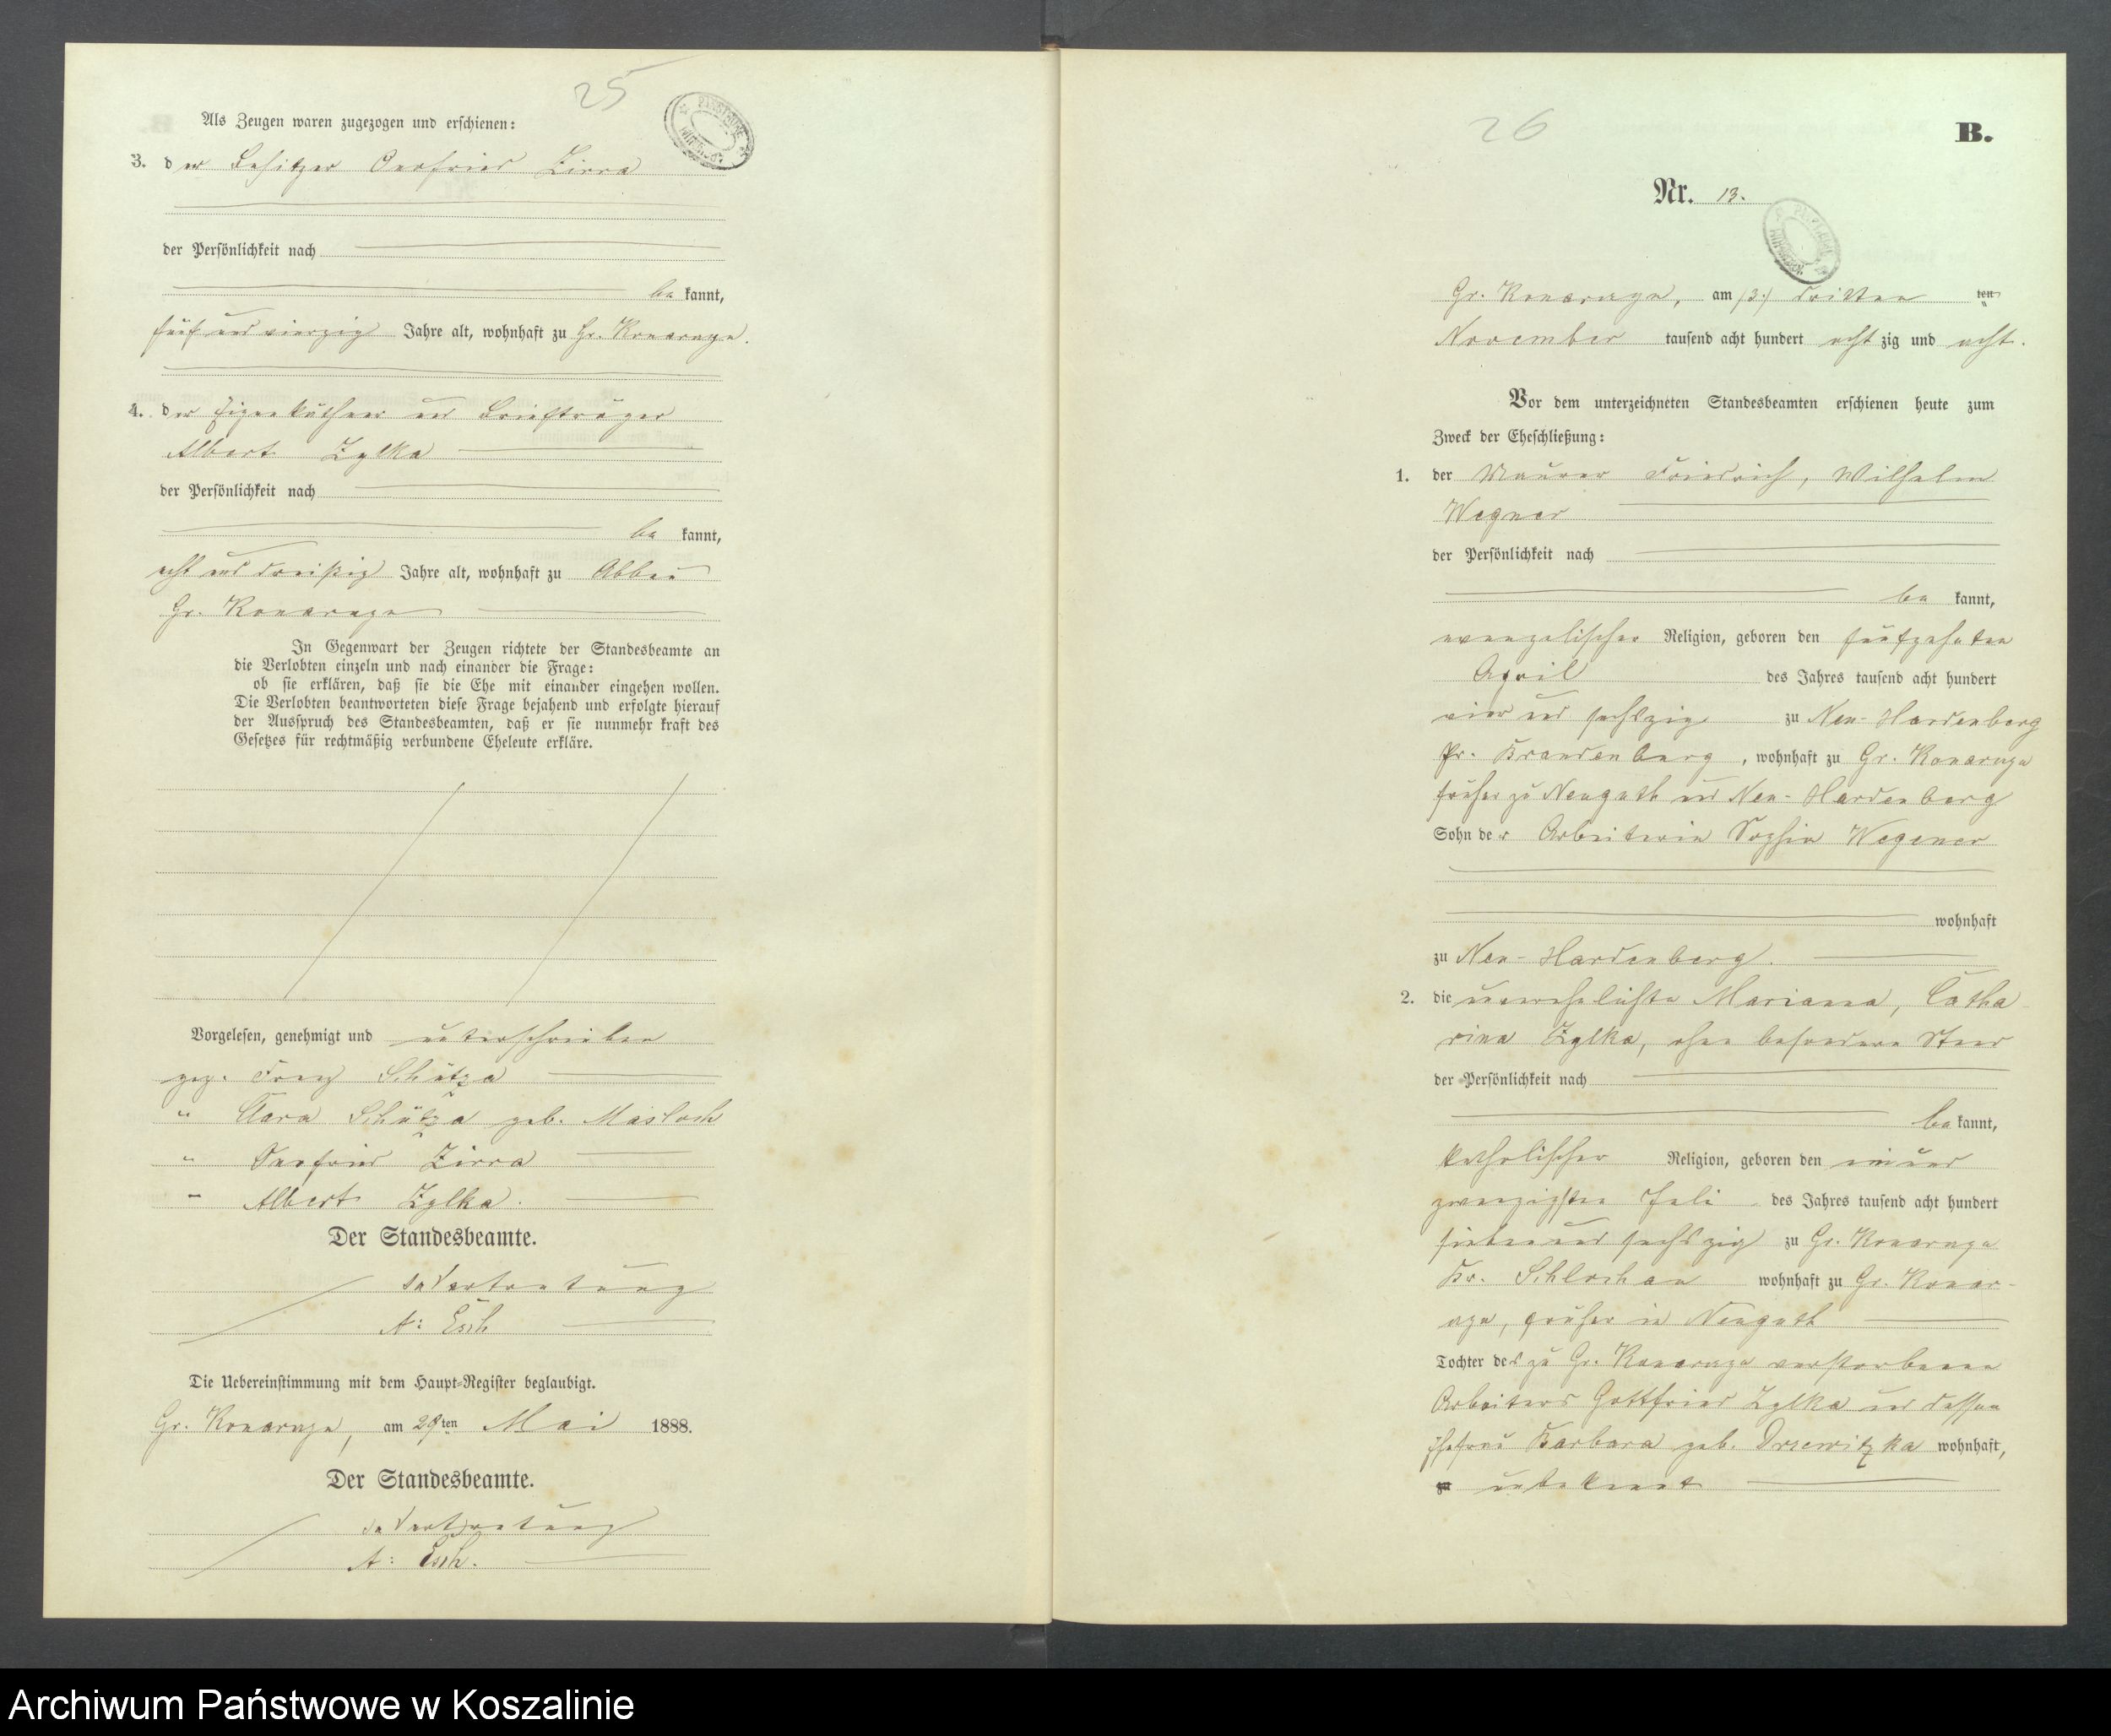 25
Als Zeugen waren zugezogen und erschienen:
3. der Besitzer Onofrius Zirra
der Persönlichkeit nach
be kannt,
fünf und vierzig Jahre alt, wohnhaft zu Gr. Konarczyn.
4. der Eigenkäthner und Briefträger
Albert Zylka
der Persönlichkeit nach
be kannt,
acht und dreißig Jahre alt, wohnhaft zu Abbau
Gr. Konarczyn
In Gegenwart der Zeugen richtete der Standesbeamte an
die Verlobten einzeln und nach einander die Frage:
ob sie erklären, daß sie die Ehe mit einander eingehen wollen.
Die Verlobten beantworteten diese Frage bejahend und erfolgte hierauf
der Ausspruch des Standesbeamten, daß er sie nunmehr kraft des
Gesetzes für rechtmäßig verbundene Eheleute erkläre.
Vorgelesen, genehmigt und unterschrieben
gez. Franz Schütza
" Clara Schütza geb. Masloch
" Zirra
" Albert Zylka.
Der Standesbeamte.
In Vertretung
A: Esch
Die Uebereinstimmung mit dem Haupt-Register beglaubigt.
Gr. Konarczyn, am 29ten Mai 1888.
Der Standesbeamte.
In Vertretung
A: Esch.
26
B.
Nr. 13.
Gr. Konarczyn, am /3./ dritten ten
November tausend acht hundert acht zig und acht.
Vor dem unterzeichneten Standesbeamten erschienen heute zum
Zweck der Eheschließung:
1. der Maurer Friedrich, Wilhelm
Wegner
der Persönlichkeit nach
be kannt,
evangelischer Religion, geboren den fünfzehnten
April des Jahres tausend acht hundert
vier und sechszig zu Neu-Hardenberg
Pr. Brandenburg, wohnhaft zu Gr. Konarczyn
früher zu Neuguth und Neu-Hardenberg
Sohn der Arbeiterin Sophie Wegener
wohnhaft
zu Neu-Hardenberg.
2. die unverehelichte Marianna, Catha
rina Zylka, ohne besonderen Stand
der Persönlichkeit nach
be kannt,
katholischer Religion, geboren den ein und
zwanzigsten Juli des Jahres tausend acht hundert
sieben und sechszig zu Gr. Konarczyn
Kr. Schlochau wohnhaft zu Gr. Konar-
czyn, früher in Neuguth
Tochter des zu Gr. Konarczyn verstorbenen
Arbeiters Gottfried Zylka und dessen
Ehefrau Barbara geb. Drzewitzka wohnhaft,
zu unbekannt
Archiwum Państwowe w Koszalinie